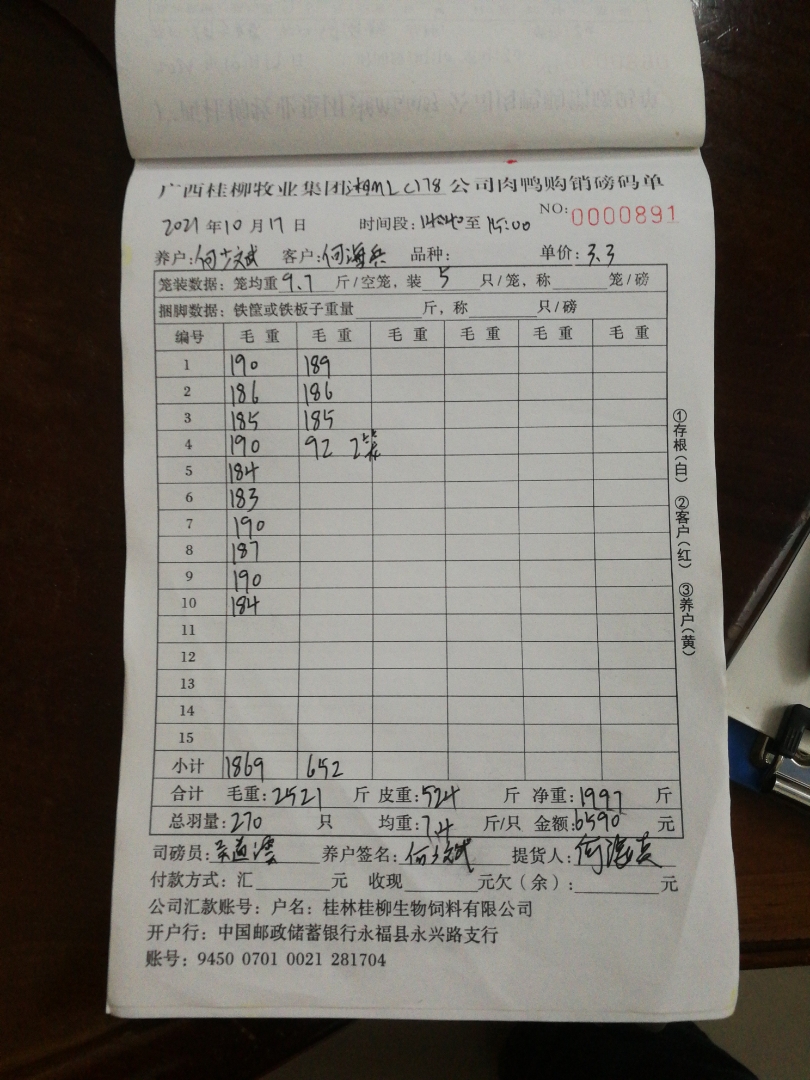 广西桂柳牧业集团湘MLC178公司肉鸭购销磅码单
NO: 0000891
2021年10月17日 时间段:14:40至15:00
养户:何少斌 客户:何海兵 品种: 单价:3.3
笼装数据:笼均重9.7斤/空笼,装5只/笼,称 笼/磅
捆脚数据:铁筐或铁板子重量 斤,称 只/磅
编号 毛重 毛重 毛重 毛重 毛重 毛重
1 190 189
2 186 186
3 185 185
4 190 92 2笼
5 184
6 183
7 190
8 187
9 190
10 184
11
12
13
14
15
小计 1869 652
合计 毛重:2521斤 皮重:524斤 净重:1997斤
总羽量:270只 均重:7.4斤/只 金额:6590元
司磅员: 养户签名:何少斌 提货人:
付款方式:汇 元 收现 元欠(余): 元
公司汇款账号:户名:桂林桂柳生物饲料有限公司
开户行:中国邮政储蓄银行永福县永兴路支行
账号:9450 0701 0021 281704
①存根(白) ②客户(红) ③养户(黄)